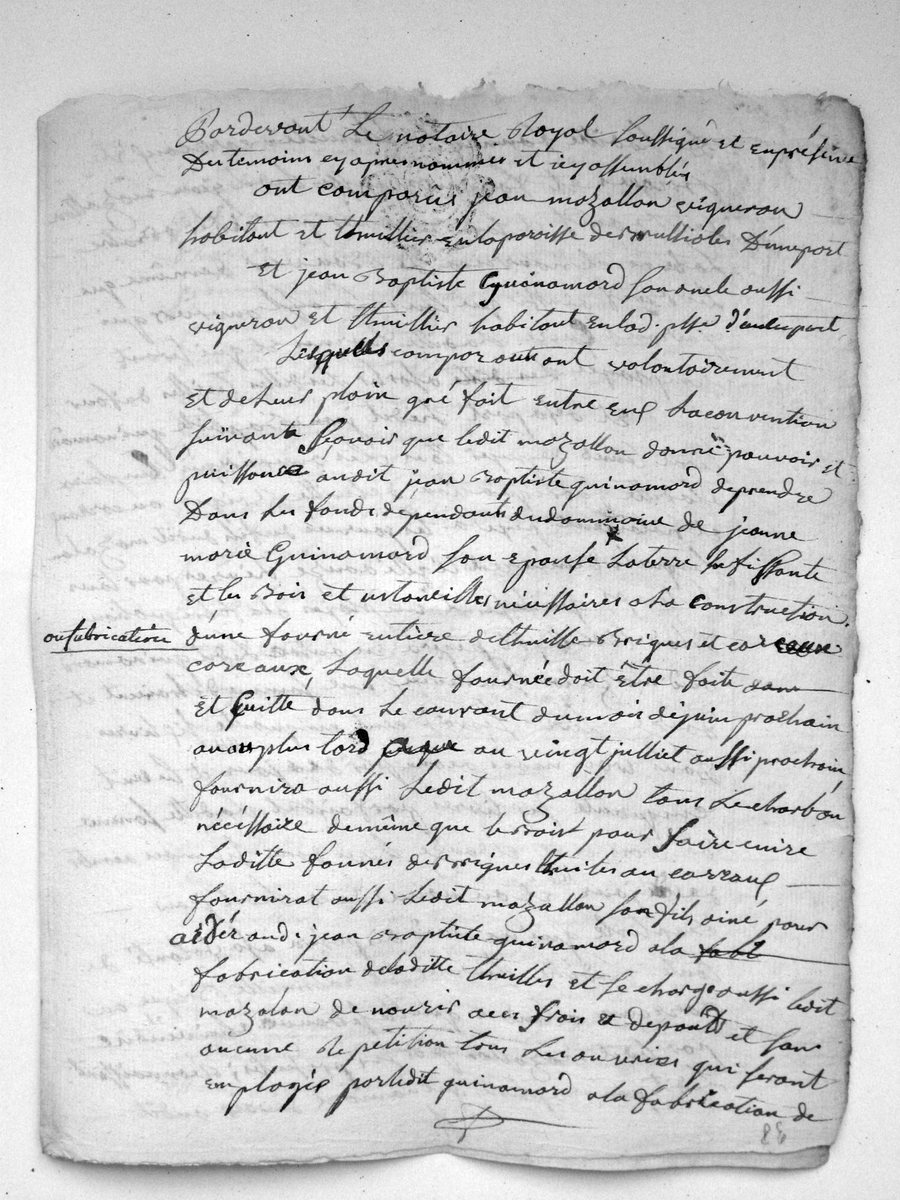 Pardevant Le notaire Royal soussigné et en présence
Des temoins cy apres nommés et icy assemblés
ont comparûs jean mazallon vigneron
habitant et thuillier en la paroisse des D'une part
Et jean Baptiste Guinamard son oncle aussi
vigneron et thuillier habitant en lad. psse. d'autre part
Lesquels comparants ont volontairement
et de Leur plain gré fait entre eux La convention
suivante sçavoir que ledit mazallon donne pouvoir et
puissance audit jean Baptiste guinamard de prendre
Dans Les fonds dépendants du dommaine de jeanne
marie Guinamard son epouse La terre suffisante
et les Bois et ustancilles nécéssaires a La construction
ou fabrication
d'une fourné entiere de thuille Briques et car
careaux, Laquelle fournée doit être faite
et Cuitte dans Le courant du mois de juin prochain
ou au plus tard au vingt julliet aussi prochain,
fournira aussi Ledit mazallon tous Le charbon
nécéssaire de même que le bois pour faire cuire
Laditte fournés de briques thuiles ou carraux
fournirat aussi Ledit mazallon son fils ainé pour
aidér aud. jean Baptiste guinamard a la fabl
fabrication de laditte thuilles et se charge aussi ledit
mazalon de nourir a ces frais et depands et sans
aucune Repetition tous Les ouvriers qui seront
employés par ledit guinamard a la fabrication de
86